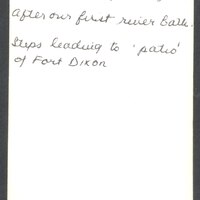 after our first river bath.
Steps leading to 'patio'
of Fort Dixon